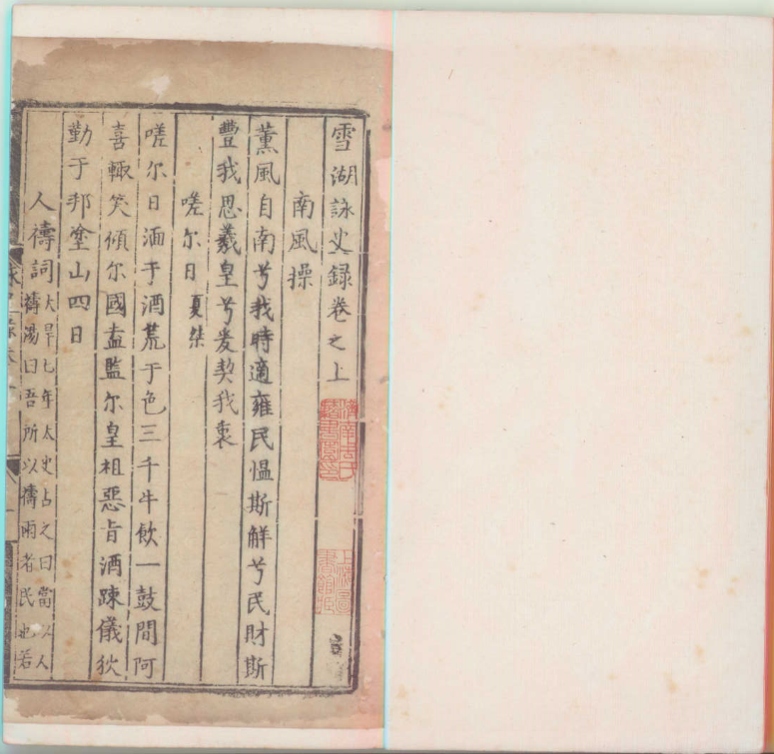 雪湖詠史録卷之上
南風操
薰風自南兮我時適雍民愠斯解兮民財斯
豐我思羲皇兮爰契我衷
嗟尔日夏桀
嗟尔日湎于酒荒于色三千牛飲一鼓間阿
喜輙笑傾尔國盍監尔皇祖惡旨酒踈儀狄
勤于邦塗山四日
人禱詞大旱七年太史占之曰當以人
禱湯曰吾所以禱雨者民也若